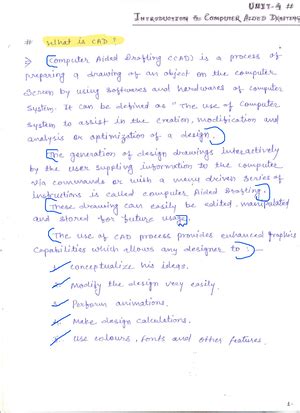 UNIT-4 #
INTRODUCTION to COMPUTER AIDED DRAFTING
# What is CAD?
Computer Aided Drafting (CAD) is a process of
preparing a drawing of an object on the computer
Screen by using Softwares and hardwares of computer
System. It can be defined as "The use of Computer
System to assist in the creation, modification and
analysis or optimization of a design.
The generation of design drawings interactively
by the user supplying information to the computer
via commands or with a menu driven series of
instructions is called computer Aided Drafting.
These drawing can easily be edited, manipulated
and stored for future usage.
The use of CAD process provides enhanced graphics
Capabilities which allows any designer to :-
1. Conceptualize his ideas.
2. Modify the design very easily.
3. Perform animations.
4. Make design calculations.
5. Use colours, fonts and other features.